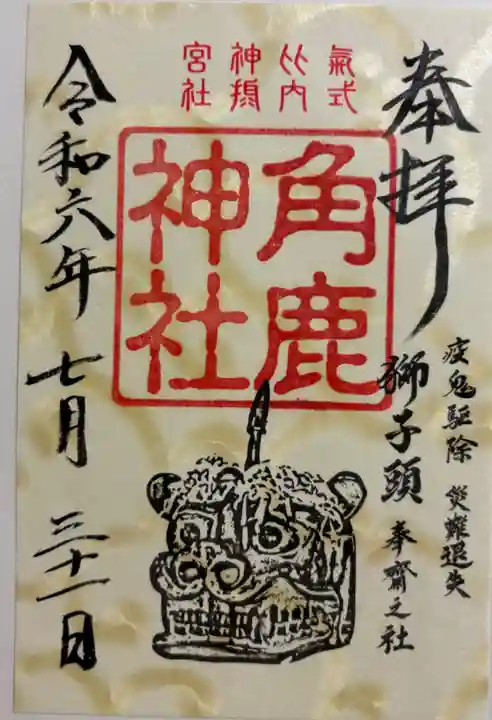 奉拝
氣比神宮
式内摂社
角鹿
神社
疫鬼驅除 災難退失
獅子頭 奉齋之社
令和六年 七月 三十一日